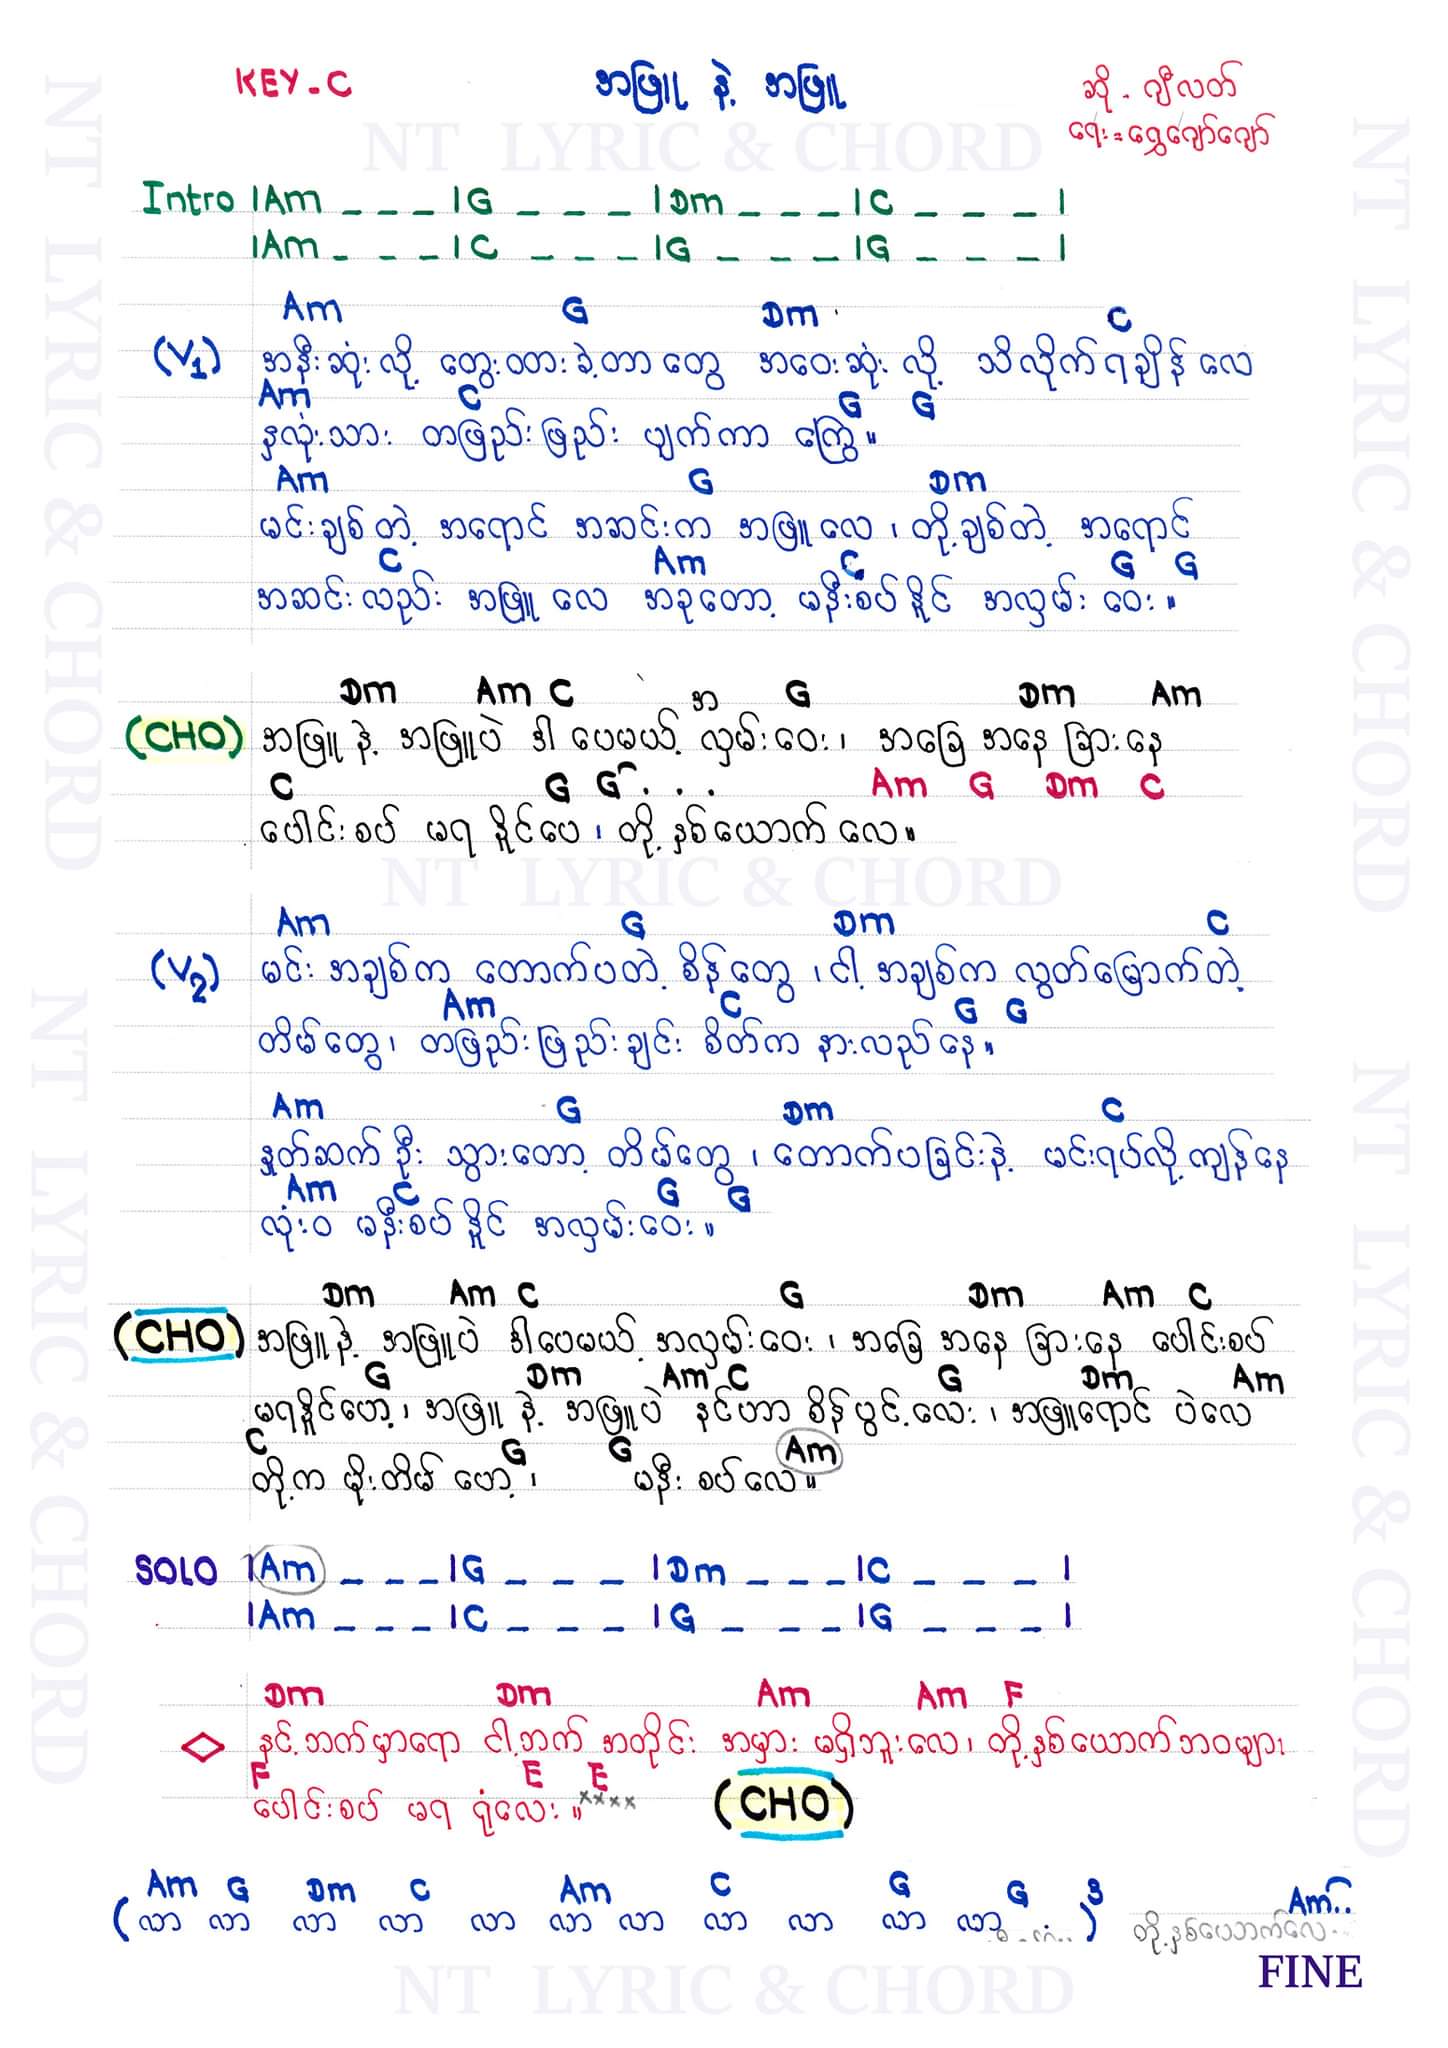 KEY-C အဖြူ နဲ့ အဖြူ ဆို - ဂျီလတ်
ရေး = ရွှေဂျော်ဂျော်
NT LYRIC & CHORD
Intro |Am _ _ _ |G _ _ _ |Dm _ _ _ |C _ _ _ |
|Am _ _ _ |C _ _ _ |G _ _ _ |G _ _ _ |
Am G Dm C
(V1) အနီးဆုံးလို့ တွေးထားခဲ့တာတွေ အဝေးဆုံးလို့ သိလိုက်ရချိန်လေ
Am C G G
နှလုံးသား တဖြည်းဖြည်း ပျက်ကာ ကြွေ။
Am G Dm
မင်းချစ်တဲ့ အရောင် အဆင်းက အဖြူလေ ၊ တို့ချစ်တဲ့ အရောင်
C Am C G G
အဆင်းလည်း အဖြူလေ အခုတော့ မနီးစပ်နိူင် အလှမ်းဝေး။
Dm Am C အ G Dm Am
(CHO) အဖြူ နဲ့ အဖြူပဲ ဒါပေမယ့် လှမ်းဝေး၊ အခြေ အနေ ခြားနေ
C G G . . . Am G Dm C
ပေါင်းစပ် မရ နိူင်ပေ ၊ တို့နှစ်ယောက်လေ။
NT LYRIC & CHORD
Am G Dm C
(V2) မင်းအချစ်က တောက်ပတဲ့ စိန်တွေ ၊ ငါ့အချစ်က လွတ်မြောက်တဲ့
Am C G G
တိမ်တွေ၊ တဖြည်းဖြည်းချင်း စိတ်က နားလည်နေ။
Am G Dm C
နှုတ်ဆက်ဦး သွားတော့ တိမ်တွေ ၊ တောက်ပခြင်းနဲ့ မင်းရပ်လို့ကျန်နေ
Am C G G
လုံးဝ မနီးစပ်နိူင် အလှမ်းဝေး။
Dm Am C G Dm Am C
(CHO) အဖြူနဲ့ အဖြူပဲ ဒါပေမယ့် အလှမ်းဝေး ၊ အခြေ အနေ ခြားနေ ပေါင်းစပ်
G Dm Am C G Dm Am
မရနိူင်ဟေ့၊ အဖြူ နဲ့ အဖြူပဲ နင်ဟာ စိန်ပွင့်လေး ၊ အဖြူရောင် ပဲလေ
C G G Am
တို့က မိုးတိမ် ဟေ့ ၊ မနီးစပ်လေ။
SOLO |Am _ _ _ |G _ _ _ |Dm _ _ _ |C _ _ _ |
|Am _ _ _ |C _ _ _ |G _ _ _ |G _ _ _ |
Dm Dm Am Am F
နင့်ဘက်မှာရော ငါ့ဘက် အတိုင်း အမှား မရှိဘူးလေ၊ တို့နှစ်ယောက်ဘဝများ
F E E
ပေါင်းစပ် မရ ရုံလေး ။ xxxx (CHO)
Am G Dm C Am C G G 3 Am..
(လာ လာ လာ လာ လာ လာ လာ လာ လာ လာ လာ ) တို့နှစ်ယောက်လေ..
FINE
NT LYRIC & CHORD
NT LYRIC & CHORD
NT LYRIC & CHORD
NT LYRIC & CHORD
NT LYRIC & CHORD